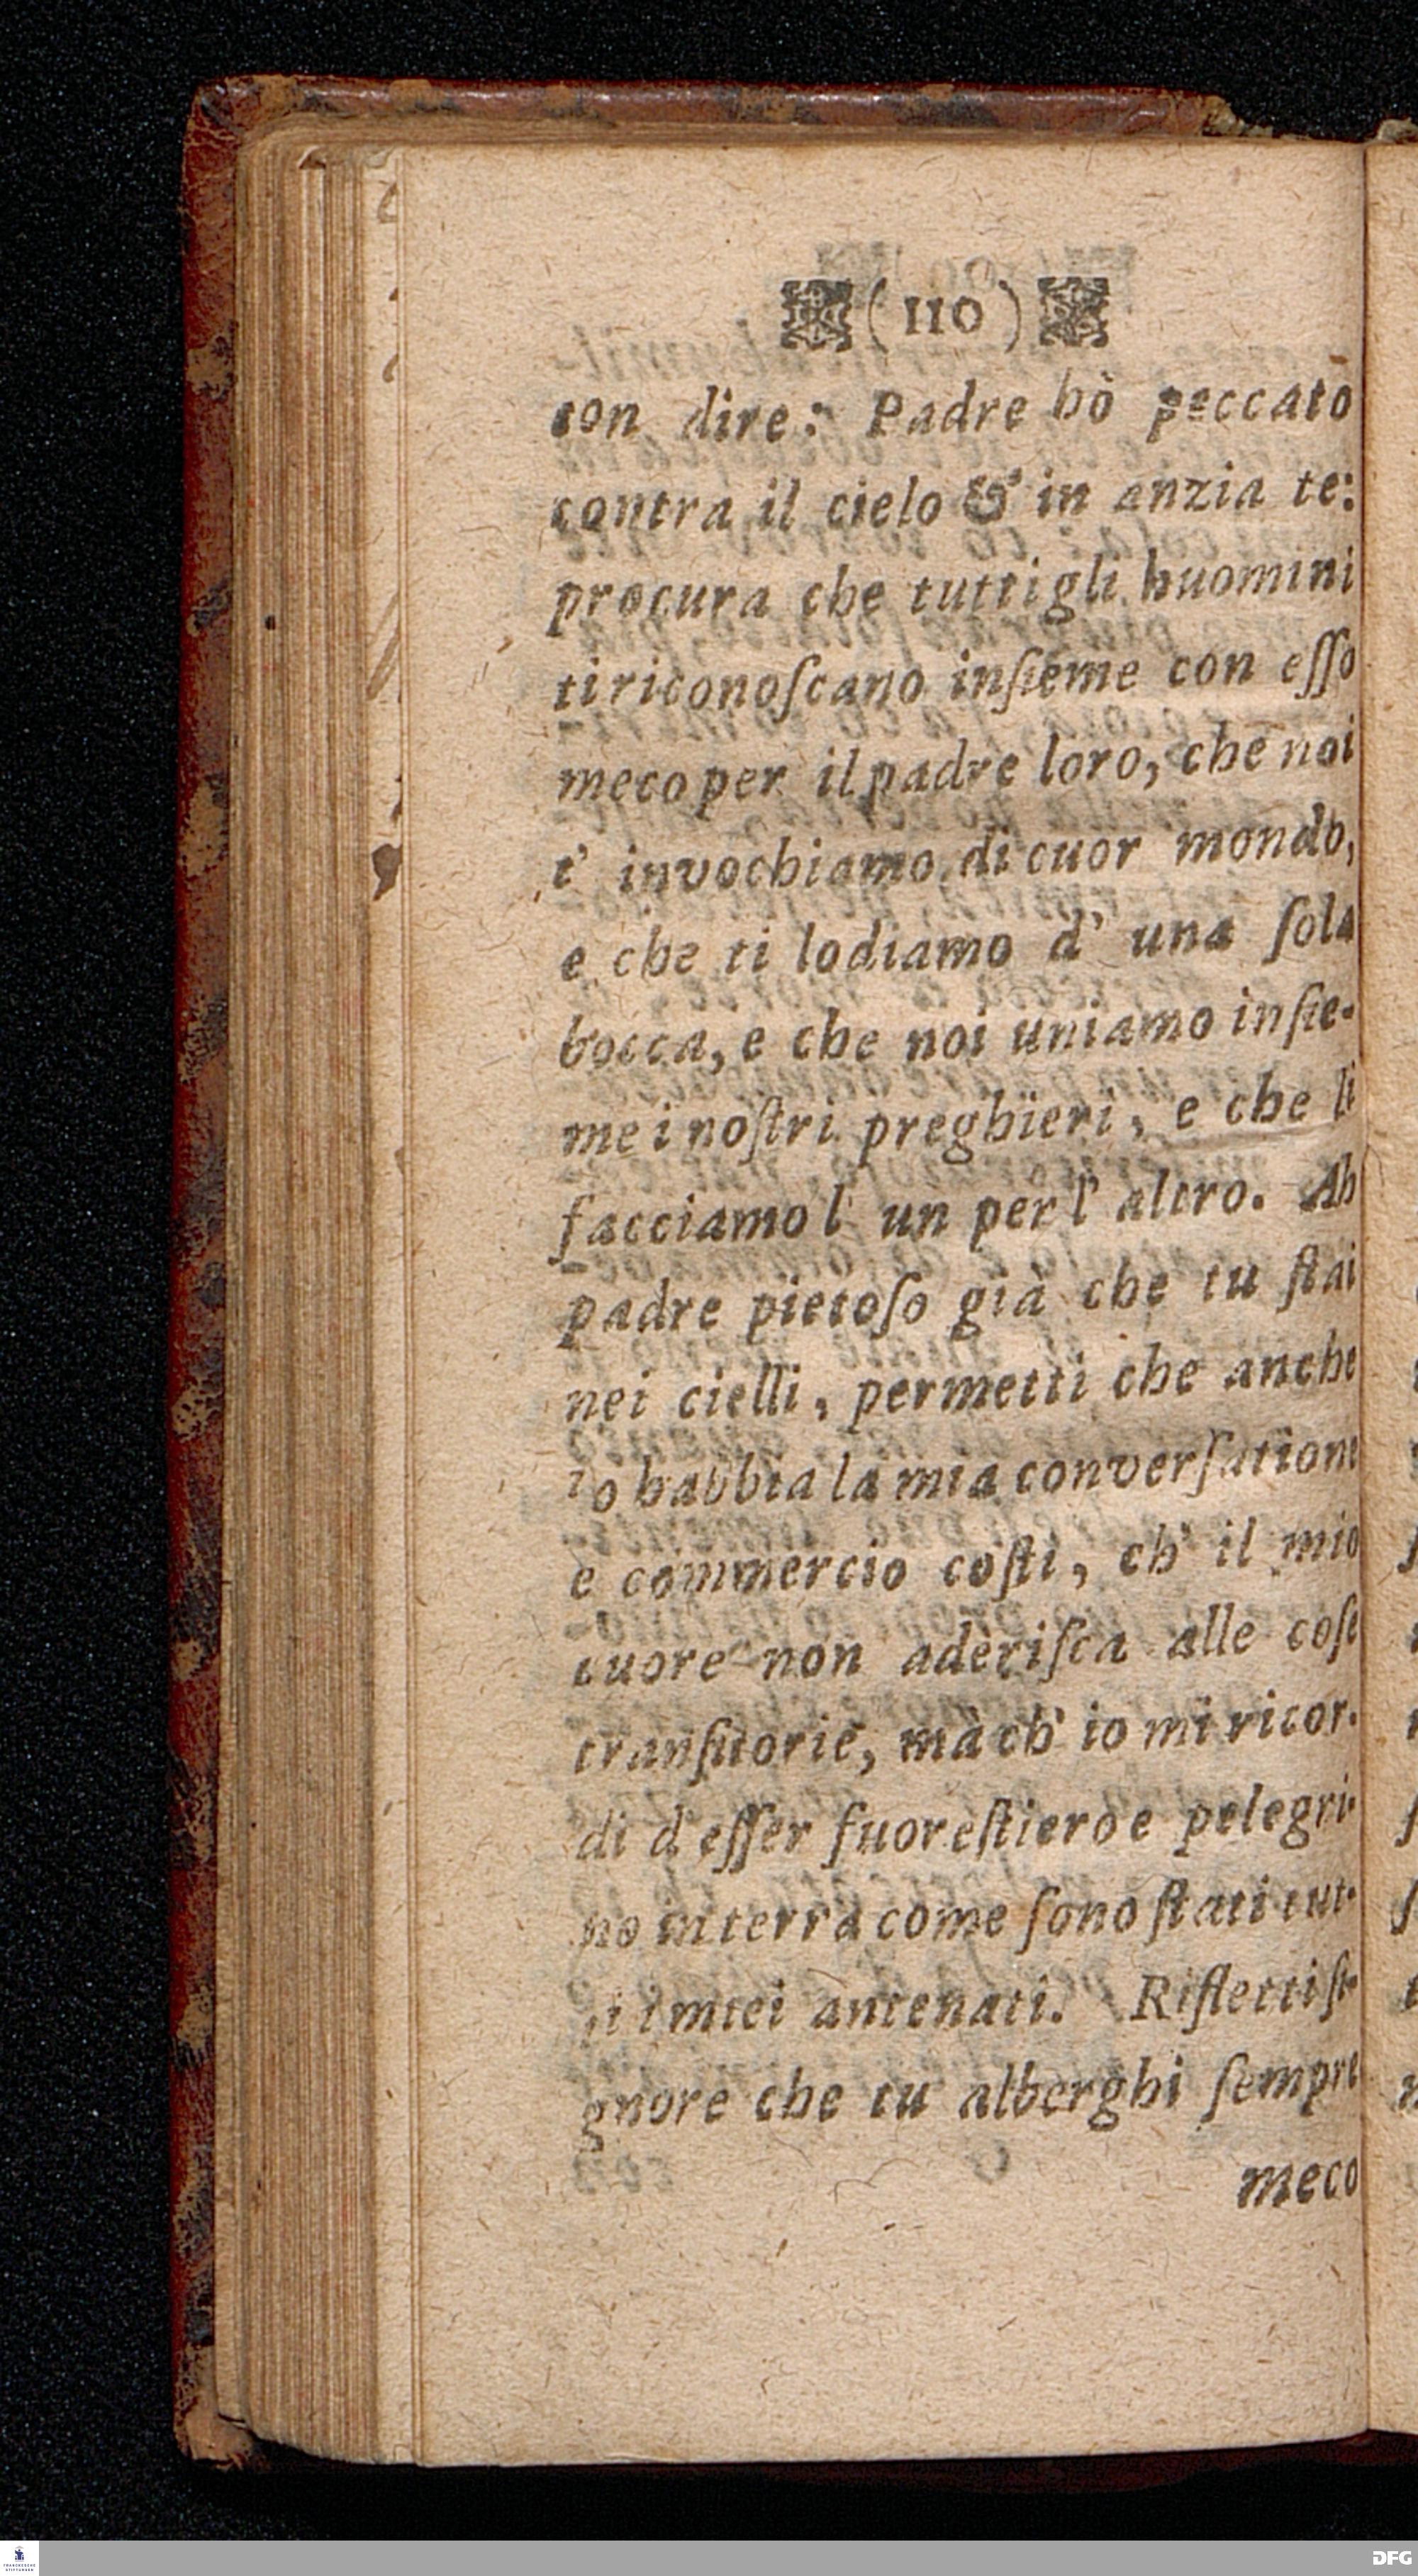 (110)
con dire: Padre hò peccato
contra il cielo & in anzia te:
procura che tutti gli huomini
ti riconoſcano inſieme con eſſo
meco per il padre loro, che noi
t' invochiamo di cuor mondo,
e che ti lodiamo d' una ſola
bocca, e che noi uniamo inſie-
me i noſtri preghieri, e che li
facciamo l' un per l' altro. Ah
padre pietoſo già che tu ſtai
nei cielli, permetti che anche
io habbia la mia converſatione
e commercio coſti, ch' il mio
cuore non aderiſca alle coſe
tranſitorie, mà ch' io mi ricor-
di d' eſſer fuoreſtiero e pelegri-
no in terra come ſono ſtati tut-
ti i miei antenati. Rifletti ſi-
gnore che tu alberghi ſempre
meco
FRANCKESCHE STIFTUNGEN
DFG